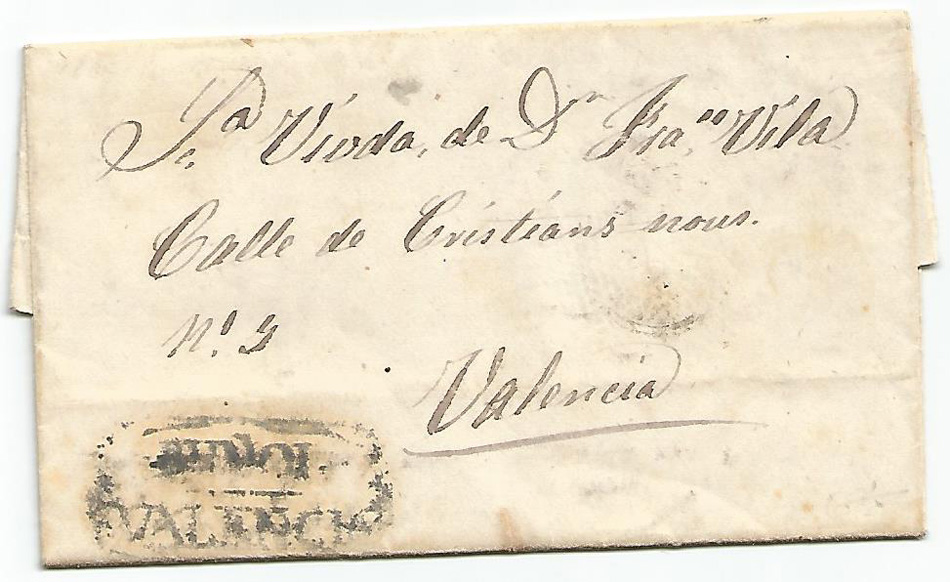 S.ra Viuda, de Dn Franco Vila
Calle de Cristians nous.
N.º 3
Valencia
BUÑOL
VALENCIA